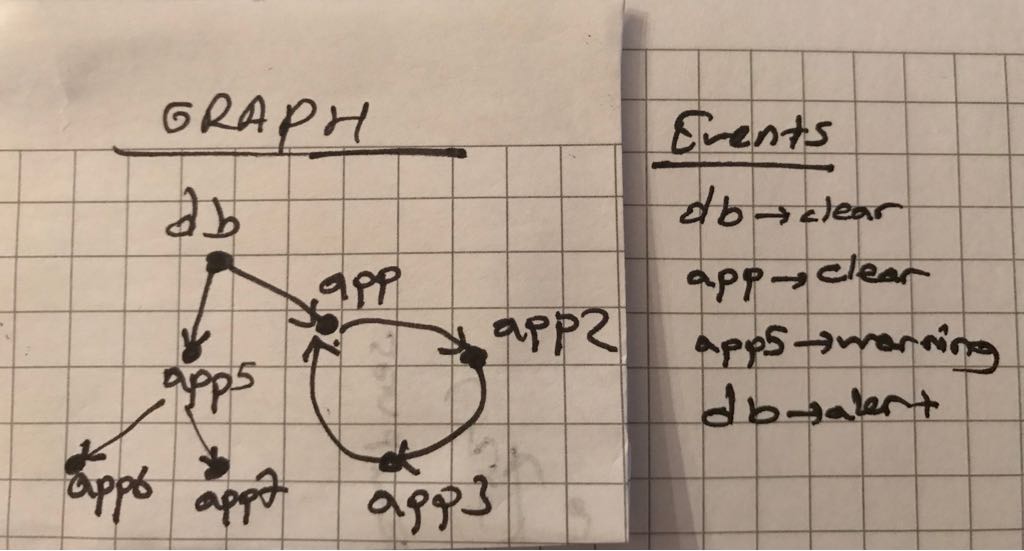 GRAPH
db
app
app2
app5
app6
app7
app3
Events
db → clear
app → clear
app5 → warning
db → alert